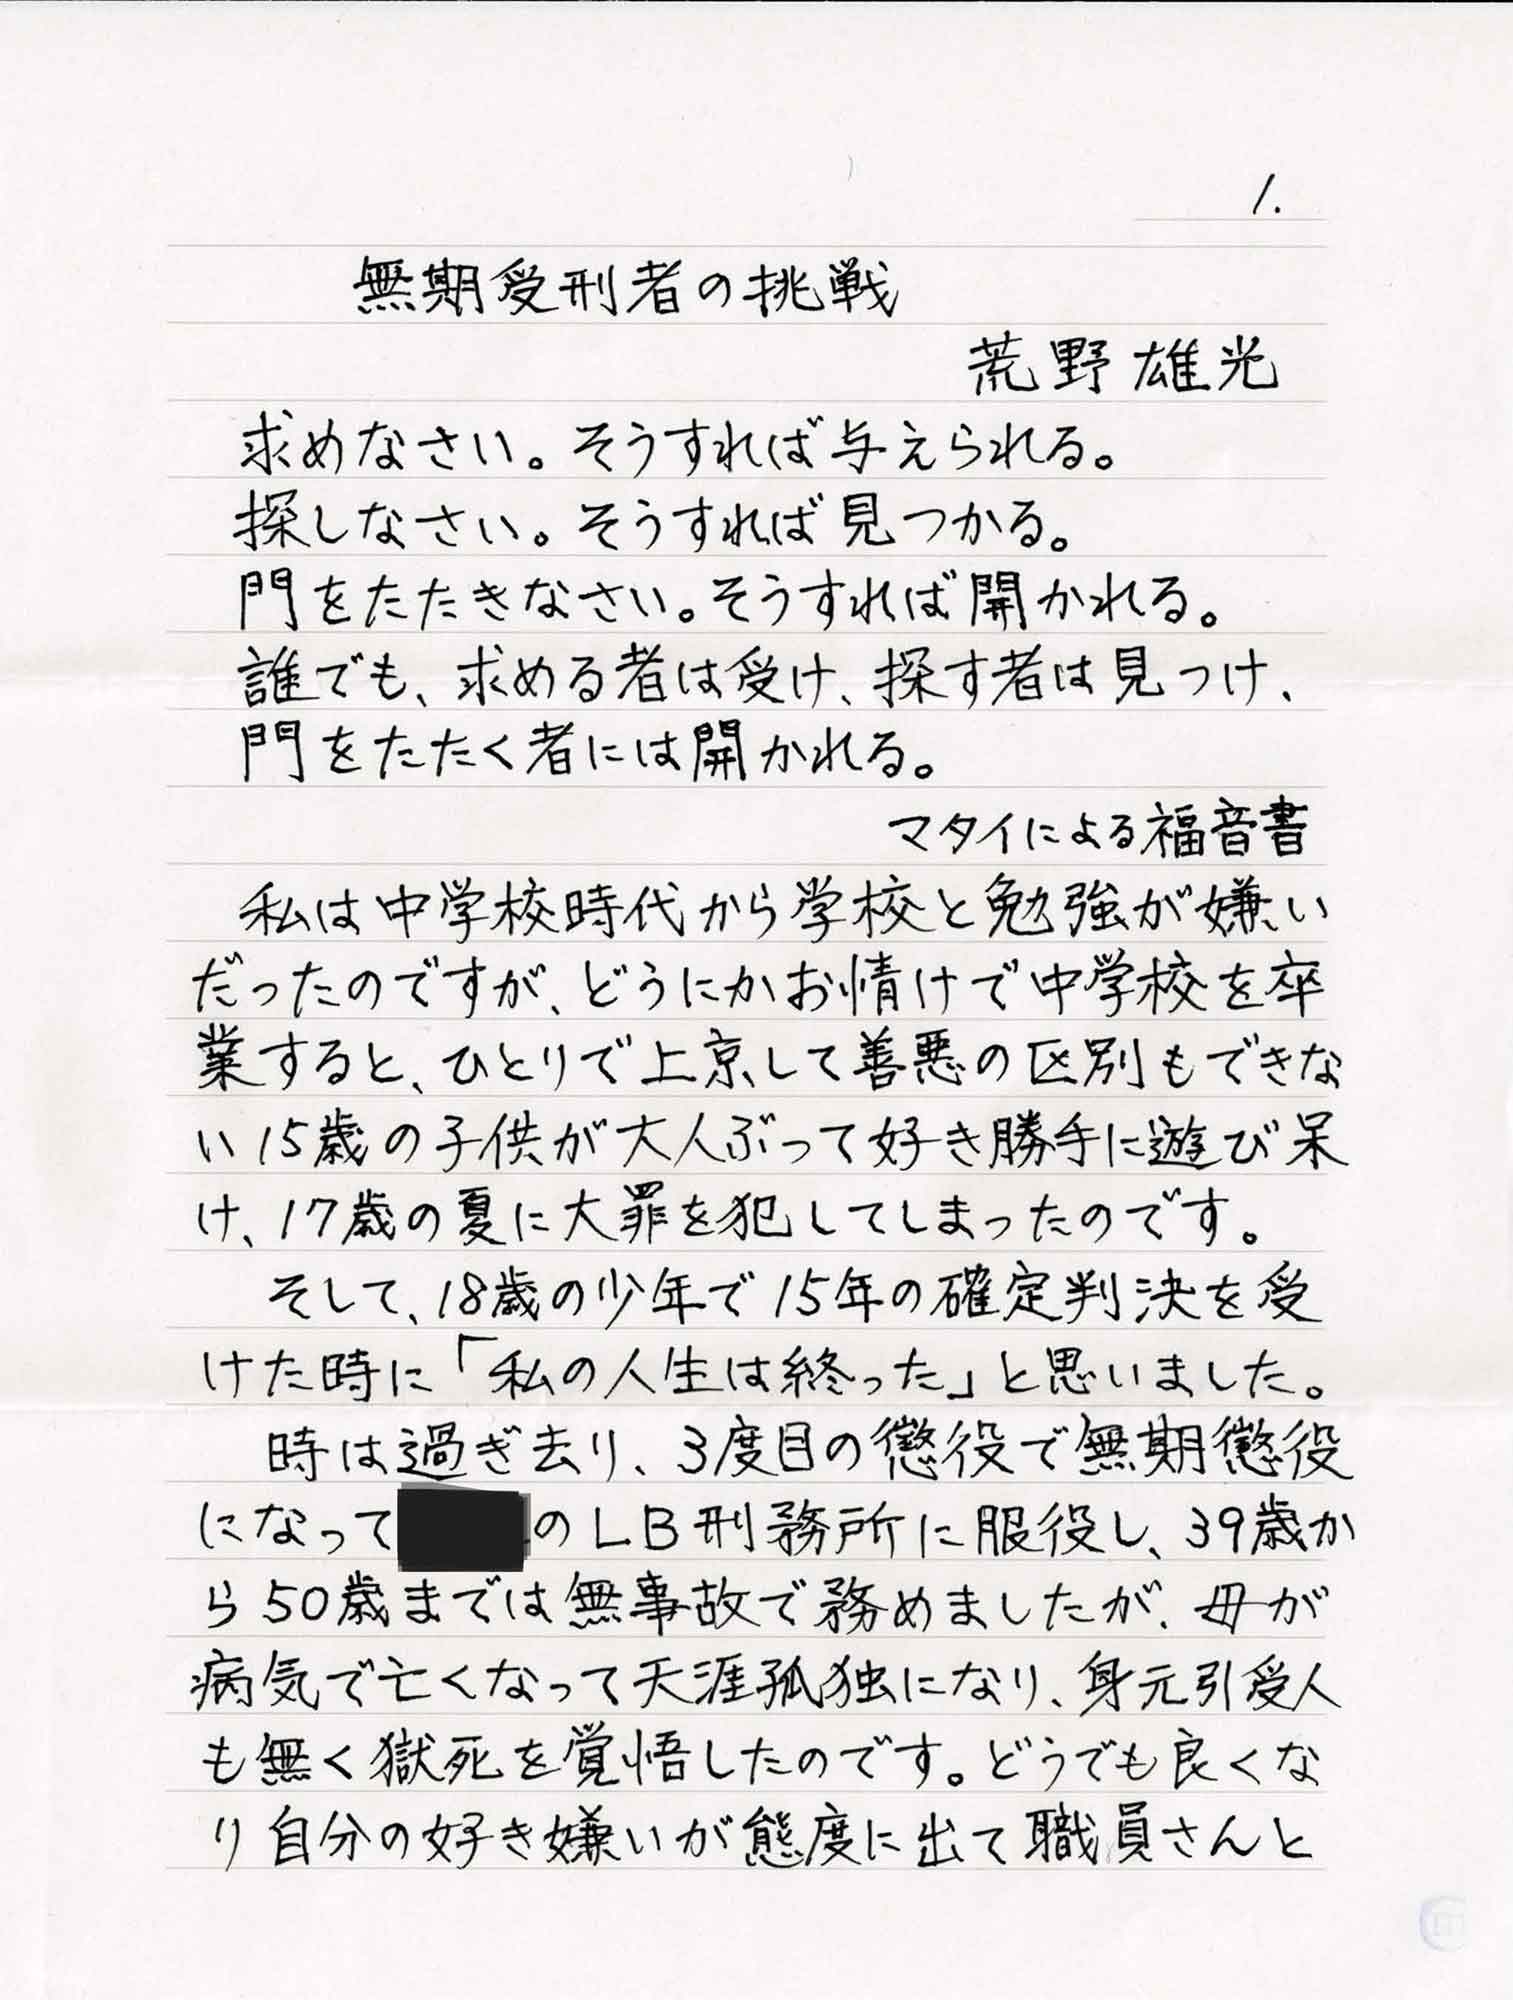 1.
無期受刑者の挑戦
荒野雄光
求めなさい。そうすれば与えられる。
探しなさい。そうすれば見つかる。
門をたたきなさい。そうすれば開かれる。
誰でも、求める者は受け、探す者は見つけ、
門をたたく者には開かれる。
マタイによる福音書
私は中学校時代から学校と勉強が嫌い
だったのですが、どうにかお情けで中学校を卒
業すると、ひとりで上京して善悪の区別もできな
い15歳の子供が大人ぶって好き勝手に遊び呆
け、17歳の夏に大罪を犯してしまったのです。
そして、18歳の少年で15年の確定判決を受
けた時に「私の人生は終った」と思いました。
時は過ぎ去り、3度目の懲役で無期懲役
になって のLB刑務所に服役し、39歳か
ら50歳までは無事故で務めましたが、母が
病気で亡くなって天涯孤独になり、身元引受人
も無く獄死を覚悟したのです。どうでも良くな
り自分の好き嫌いが態度に出て職員さんと